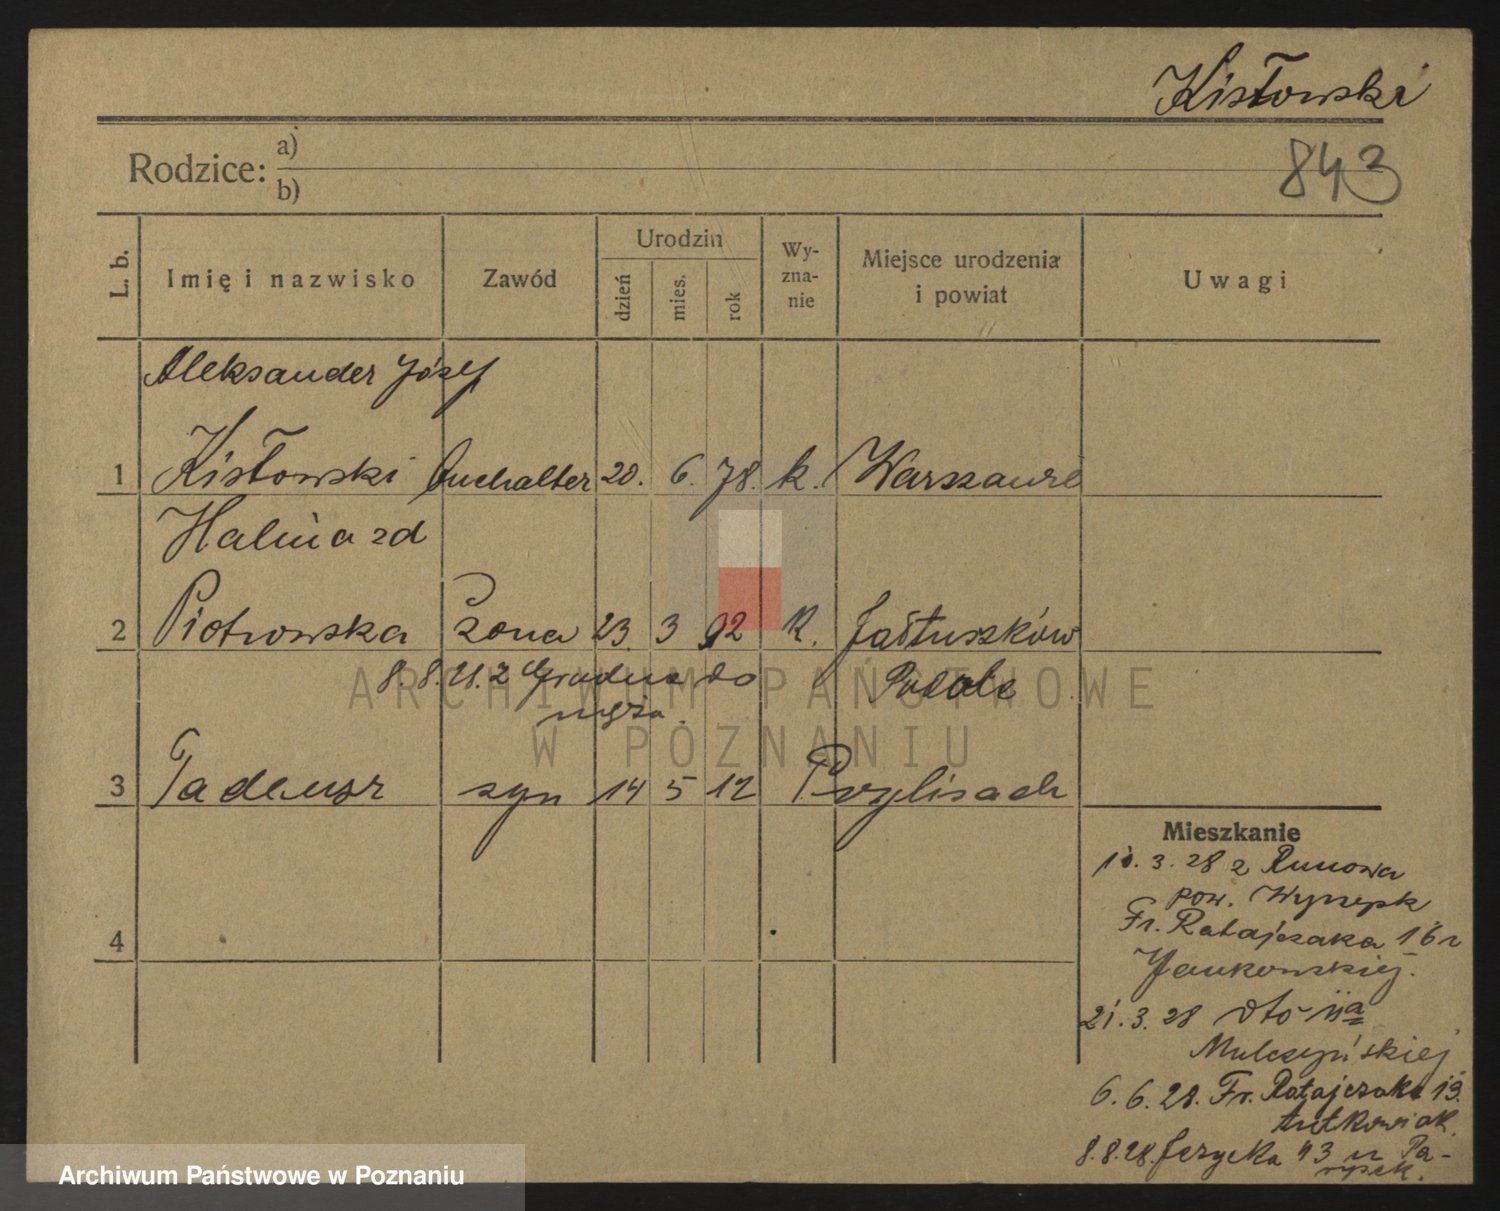 Kisłowski
843
Rodzice: a)
b)
L. b.
Imię i nazwisko
Zawód
Urodzin
dzień
mies.
rok
Wy-
zna-
nie
Miejsce urodzenia
i powiat
Uwagi
Aleksander Józef
1 Kisłowski buchalter 20. 6. 78. k. Warszawa
Halina zd
2 Piotrowska żona 23. 3 92 k. Jałtuszków
8.8.21. z do Podole
męża.
3 Tadeusz syn 14 5 12
4
Mieszkanie
10. 3. 28 z Runowa
pow. Wyrzysk
Fr. Ratajczaka 16 u
Jankowskiej.
21. 3. 28 dto 11a
6. 6. 28. Fr. Ratajczaka 13.
8.8.28. 43 u Pa-
ARCHIWUM PAŃSTWOWE
W POZNANIU
Archiwum Państwowe w Poznaniu